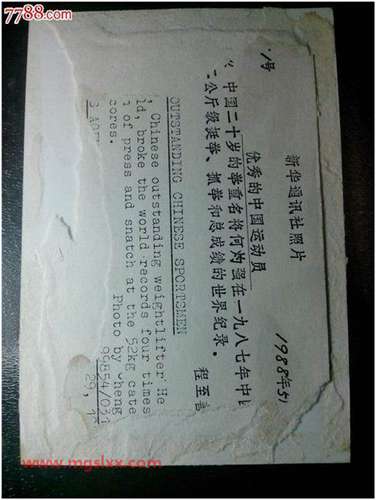 7788.com
新华通讯社照片
1988年5
号
优秀的中国运动员
中国二十岁的举重名将何灼强在一九八七年中
公斤级挺举、抓举和总成绩的世界纪录。
程至
OUTSTANDING CHINESE SPORTSMEN
, Chinese outstanding weightlifter He
ld, broke the world records four times
of press and snatch at the 52kg cate
cores.
Photo by Cheng
99854/033
29,
www.mgslxx.com